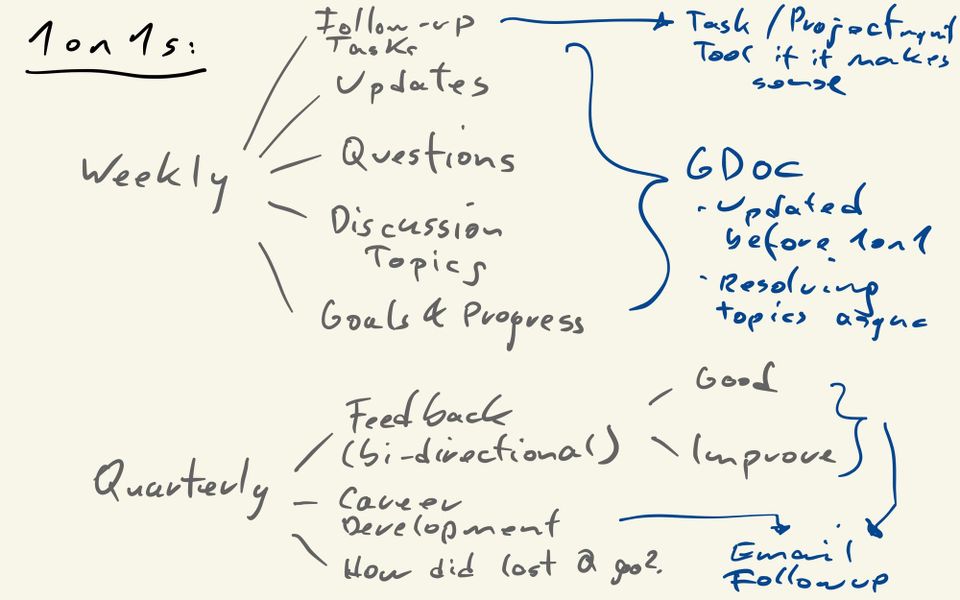 1on1s:
Follow-up
Tasks
Updates
Weekly
Questions
Discussion
Topics
Goals & Progress
Task / Project mgmt
Tool if it makes
sense
GDoc
· Updated
before 1on1
· Resolving
topics async
Quarterly
Feedback
(bi-directional)
Good
Improve
Career
Development
How did last Q go?
Email
Followup